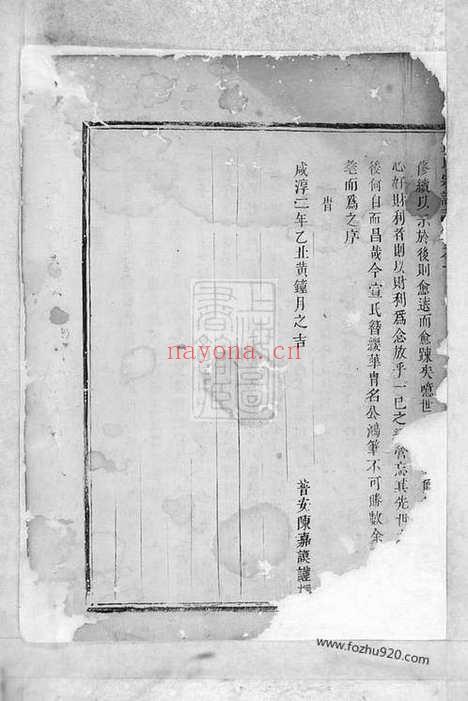 修續以示於後則愈遠而愈踈矣噫世
心好財利者則以財利爲念放乎一己之 忘其先世
後何自而昌哉今宣氏簪纓華胄名公鴻筆不可勝數余
耄而爲之序
旹
咸淳二年乙丑黃鐘月之吉
普安陳嘉謨謹
上海圖書館藏
nayona.cn
www.fozhu920.com